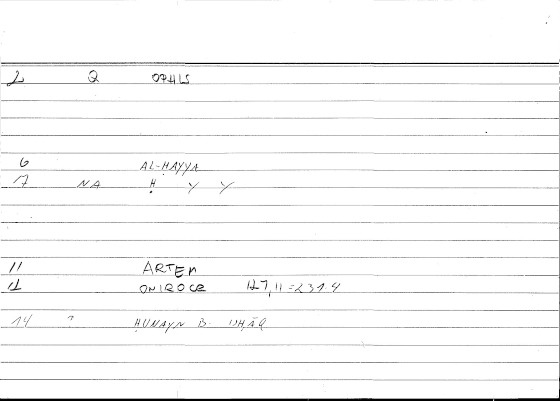 2 Q OPHIS
6 AL-ḤAYYA
7 NA Ḥ Y Y
11 ARTEM
12 ONIROCR 127,11=231.4
14 ? ḤUNAYN B. ISḤĀQ